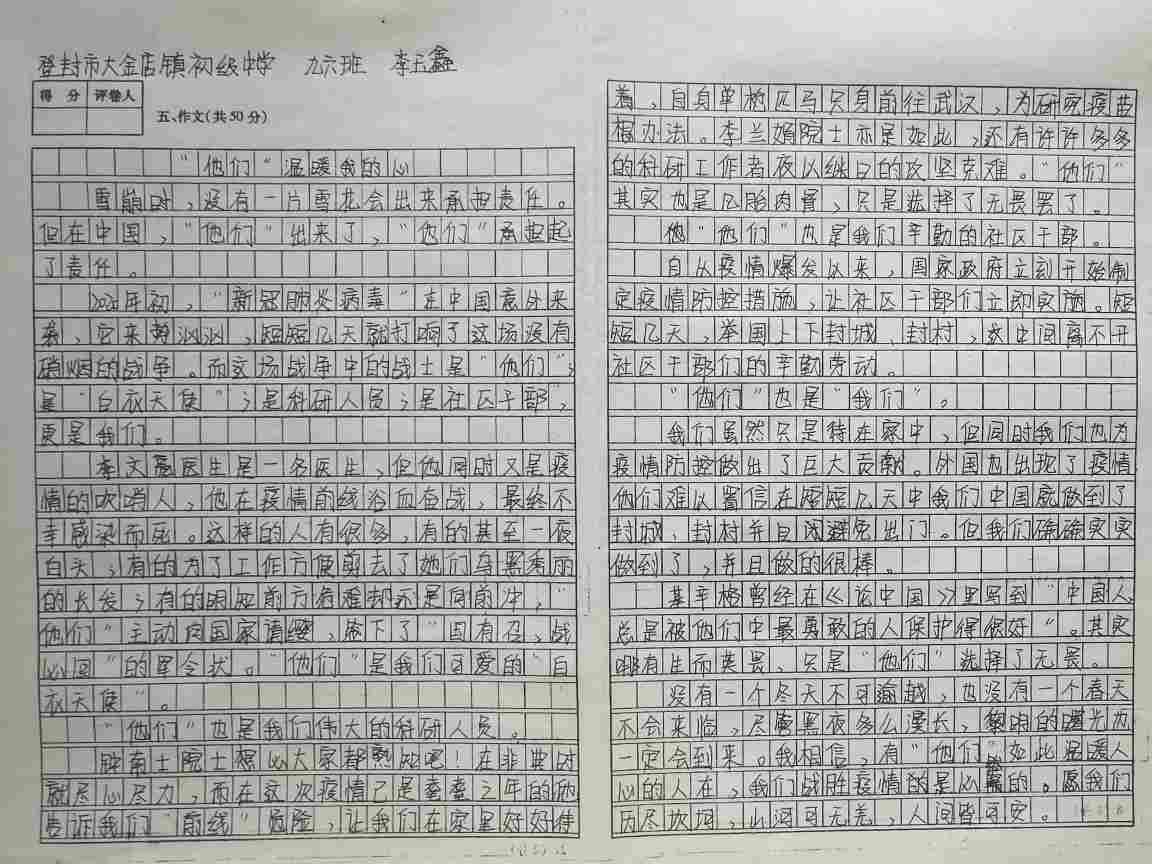 登封市大金店镇初级中学 九六班 李玉鑫
得 分 评卷人
五、作文(共50分)
"他们"温暖我的心
雪崩时，没有一片雪花会出来承担责任。
但在中国，"他们"出来了，"他们"承担起
了责任。
2020年初，"新冠肺炎病毒"在中国意外来
袭，它来势汹汹，短短几天就打响了这场没有
硝烟的战争。而这场战争中的战士是"他们"；
是"白衣天使"；是科研人员；是社区干部，
更是我们。
李文亮医生是一名医生，但他同时又是疫
情的吹哨人，他在疫情前线浴血奋战，最终不
幸感染而死。这样的人有很多，有的甚至一夜
白头；有的为了工作方便剪去了她们乌黑秀丽
的长发；有的明知前方危难却还是向前冲，"
他们"主动向国家请缨，签下了"国有召，战
必回"的军令状。"他们"是我们可爱的"白
衣天使"。
"他们"也是我们伟大的科研人员。
钟南士院士想必大家都熟知吧！在非典时
就尽心尽力，而在这次疫情已是耄耋之年的他
告诉我们"前线"危险，让我们在家里好好待
着，自身单枪匹马只身前往武汉，为研究疫苗
想办法。李兰娟院士亦是如此，还有许许多多
的科研工作者夜以继日的攻坚克难。"他们"
其实也是凡胎肉骨，只是选择了无畏罢了。
他"他们"也是我们辛勤的社区干部。
自从疫情爆发以来，国家政府立刻开始制
定疫情防控措施，让社区干部们立即实施。短
短几天，举国上下封城、封村，这中间离不开
社区干部们的辛勤劳动。
"他们"也是"我们"。
我们虽然只是待在家中，但同时我们也为
疫情防控做出了巨大贡献。外国也出现了疫情
他们难以置信在短短几天中我们中国就做到了
封城、封村并且闭避免出门。但我们确确实实
做到了，并且做的很棒。
基辛格曾经在《论中国》里写到"中国人
总是被他们中最勇敢的人保护得很好"。其实
哪有生而英畏，只是"他们"选择了无畏。
没有一个冬天不可逾越，也没有一个春天
不会来临，尽管黑夜多么漫长，黎明的曙光也
一定会到来。我相信，有"他们"如此温暖人
心的人在，我们战胜疫情的是必然的。愿我们
历尽坎坷，山河可无恙，人间皆可安。